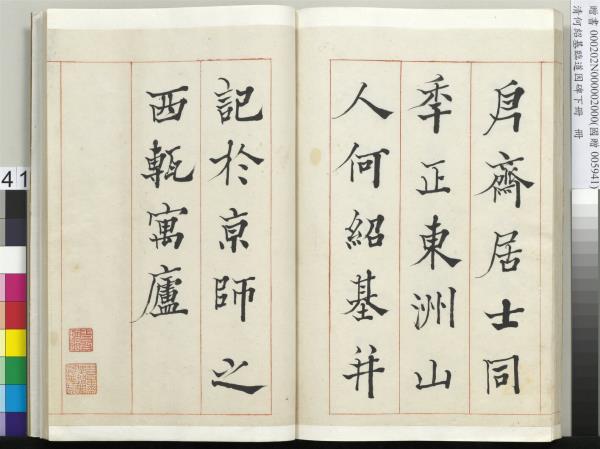 贈書 000202N000002000(國贈 005941)
清何紹基臨道因碑下冊 冊
㐆齋居士同
秊正東洲山
人何紹基并
記於京師之
西甎寓廬
41